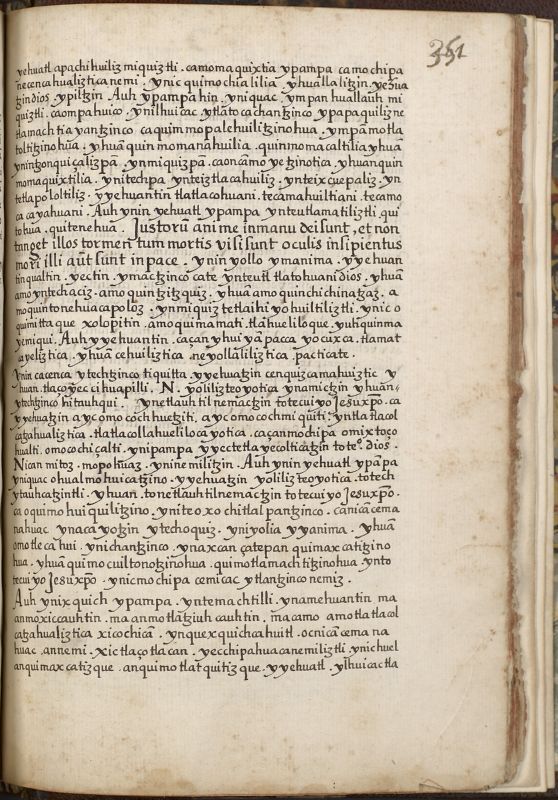 351
yehuatl apachihuiliz miquiztli. camo ma quixtia ypampa camochipa
ñecenca hualiztica nemi. ynic quimochialilia. yhuallalitzin yesua
tzin dios. ypiltzin Auh ypampa hin. yniquac. ympan huallauh mi
quiztli. ca ompa huico. ynilhuicac. ytlàtocachantzinco. ypapaquiliz ne
tlamachtia yantzinco caquimmopalehuilitzinohua. ympãmotla
toltitzinohũa. yhuãn quinmomanahuilia. quinmomacaltilia yhua
yninçonquiçalizpã. ynmiquizpã. caoncãmo yetzinotica. yhuan quin
momaquixtilia. ynitechpa ynteiztlacahuiliz. ynteixcuepaliz. yn
tetlapololtiliz. yyehuantin tlatlacohuani. tecamahuiltiani. tecamo
cacayahuani. Auh ynin yehuatl ypampa ynteutlamatiliztli. qui
tohua. quitenehua. Justorũ anime inmanu dei sunt, et non
tanget illos tormentum mortis visi sunt oculis insipientus
mori illi aũt sunt in pace. ynin yollo ymanima. yyehuan
tin qualtin. yectin. ymactzinco cate ynteutl tlatohuani dios. yhuã
amo yntechaciz. amo quintzitzquiz. yhuã amo quinchichinatzaz. a
moquintonehuacapoloz ynmiquiztetlaihiyohuiltiliztli. ynic o
quimittaque xolopitin. amo quimamati. tlãhueliloque. yuhquinma
yemiqui. Auh yyehuantin. caçan yhuiyan pacca yocuxca. tlamat
cayeliztica. yhuã cehuiliztica. neyollãliliztica. pacticate.
ynin cacenca ytechtzinco tiquitta yyehuatzin cenquizcamahuiztic y
huan. tlaçoyecci huapilli. N. yoliliz teoyotica ynamictzin yhuãn.
ytechtzinco hitauhqui. ynetlauhtilnemactzin totecuiyo Jesu xpõ. ca
yyehuatzin aycomo cochhuetziti, aycomo cochmiquiti. yntlatlacol
catzahualiztica. tlatlacollahuelilocayotica. caçanmochipa omixtoço
hualti. omocochiçalti. ynipampa yyectetlayecolticatzin totẽo. dios.
Nican mitoz. mopohuaz. yninemilitzin. Auh ynin yehuatl ypãpa
yniquac ohualmohuicatzino. yyehuatzin yoliliz teoyotica. totech
ytauhcatzintli. yhuan. tonetlauhtilnemactzin totecuiyo Jesuxpõ.
ca oquimohuiquilitzino. yniteoxochitlalpantzinco. canicã cema
nahuac ynacayotzin ytechoquiz. yniyolia yyanima. yhuã
omotlecahui. ynichantzinco. ynaxcan çatepan quimaxcatitzino
hua. yhuã quimocuiltonotzinohua. quimotlamachtitzinohua. ynto
tecuiyo Jesu xpõ. ynic mochipa cemicac ytlantzinco nemiz.
Auh ynixquich ypampa. yntemachtilli. ynamehuantin ma
anmoxiccauhtin. ma anmotlãtziuhcauhtin. macamo amotlatlacol
catzahualiztica xicochicã. ynquexquichcahuitl. ocnicã cemana
huac annemi. xictlaçotlacan. yecchipahuacanemiliztli ynichuel
anquimaxcatizque. anquimotlatquitizque. yyehuatl. ylhuicactla